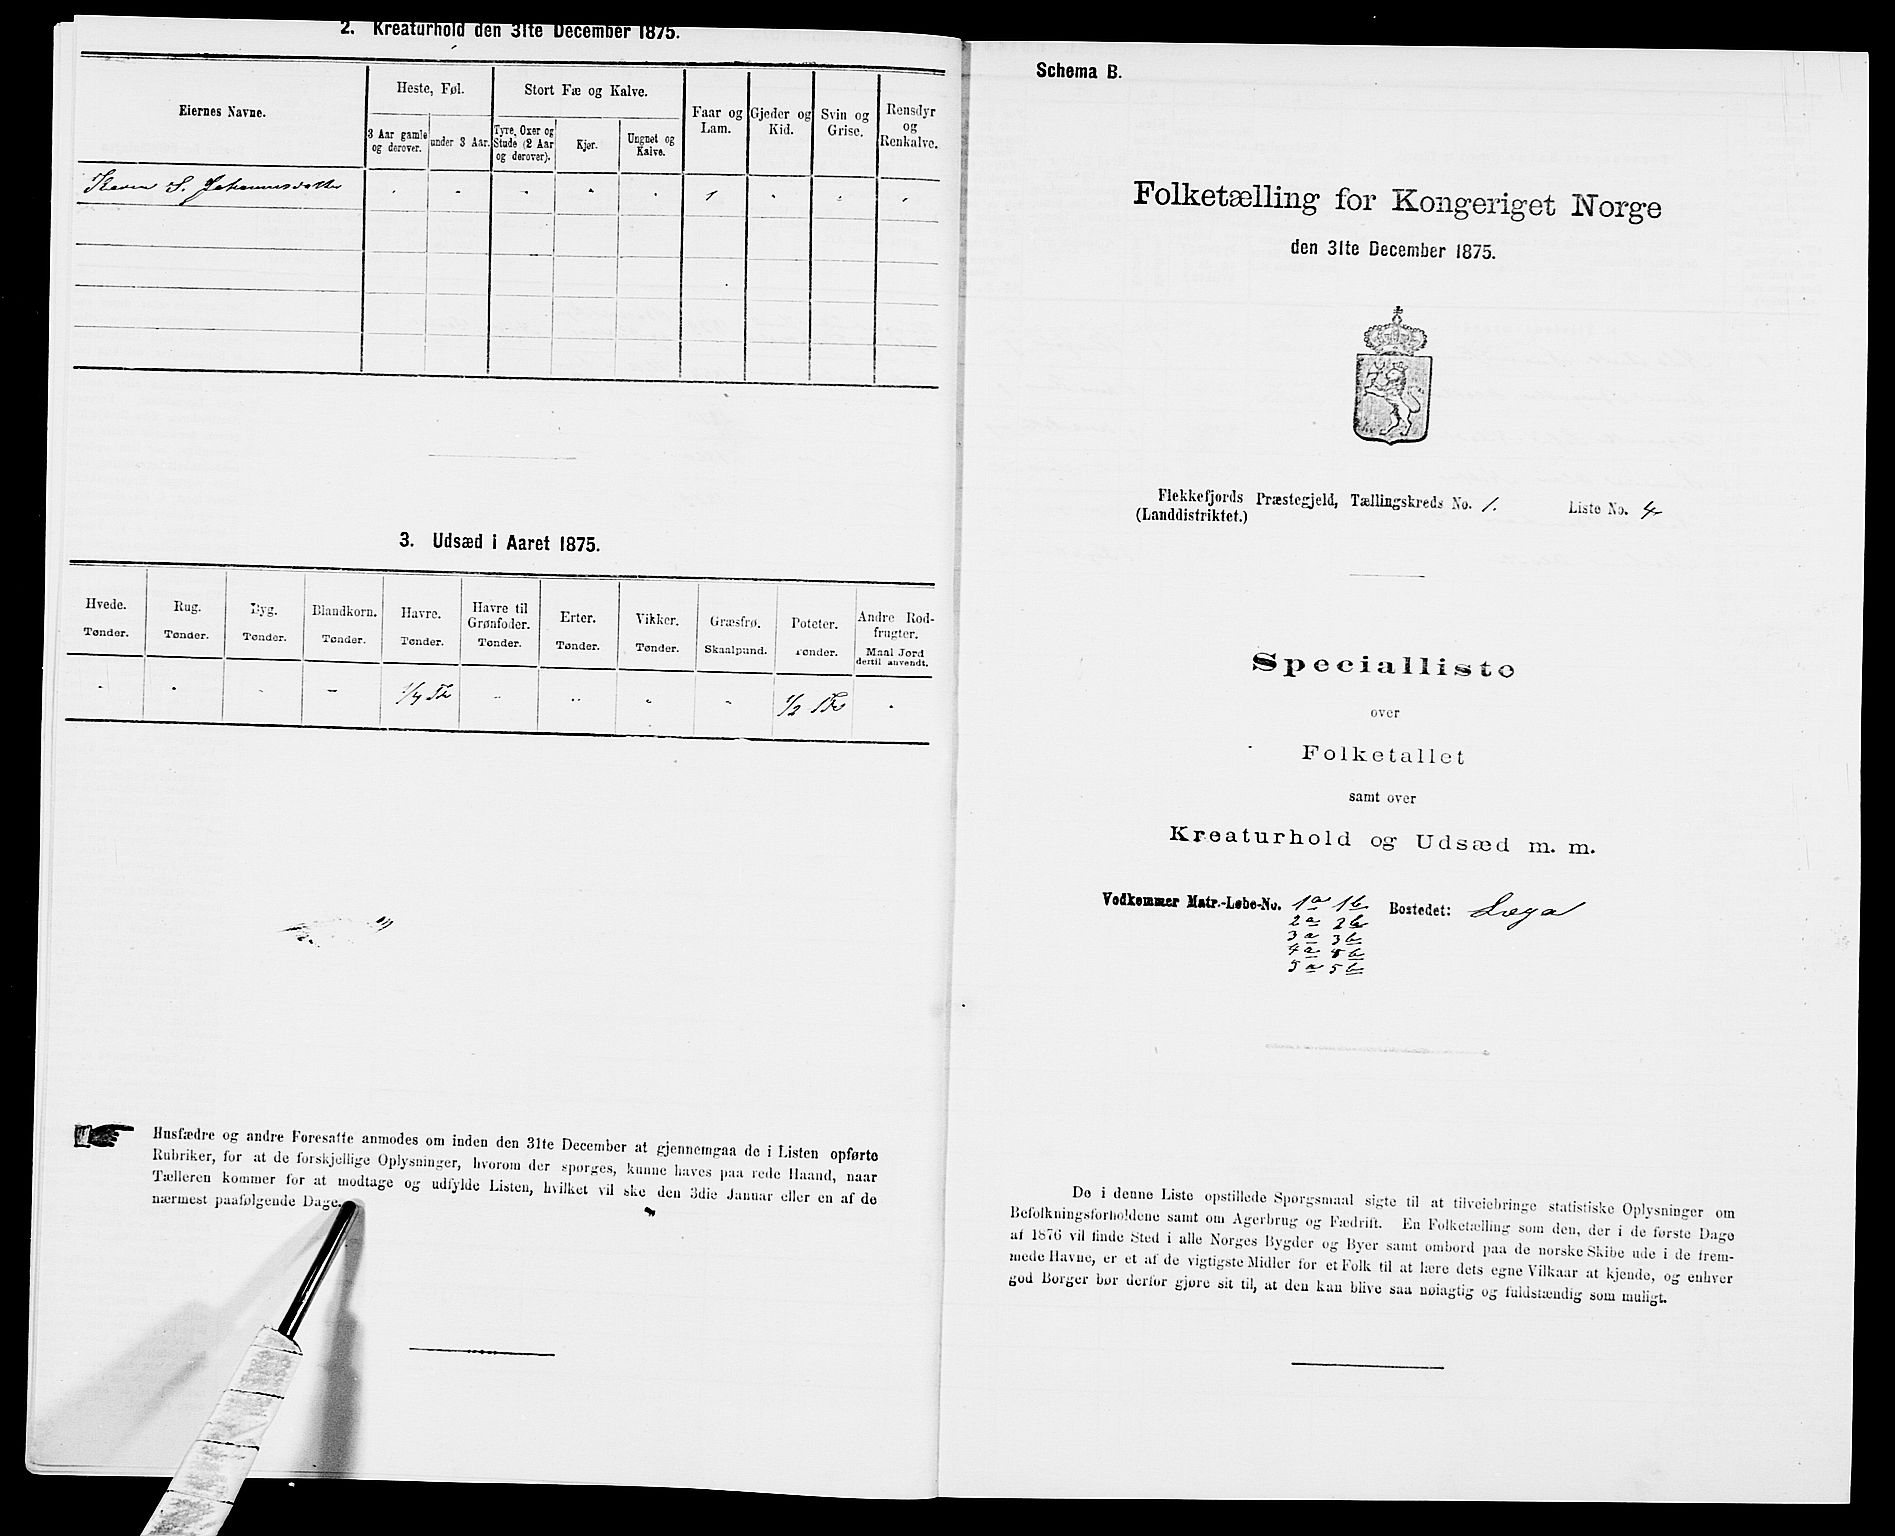 2. Kreaturhold den 31te December 1875.
Eiernes Navne.
Heste, Føl.
Stort Fæ og Kalve.
Faar og
Lam.
Gjeder og
Kid.
Svin og
Grise.
Rensdyr
og
Renkalve.
3 Aar gamle
og derover.
under 3 Aar.
Tyre, Oxer og
Stude (2 Aar
og derover).
Kjør.
Ungnet og
Kalve.
Karen S. Johannesdatter 1
3. Udsæd i Aaret 1875.
Hvede.
Tønder.
Rug.
Tønder.
Byg.
Tønder.
Blandkorn.
Tønder.
Havre.
Tønder.
Havre til
Grønfoder.
Tønder.
Erter.
Tønder.
Vikker.
Tønder.
Græsfrø.
Skaalpund.
Poteter.
Tønder.
Andre Rod-
frugter.
Maal Jord
dertil anvendt.
1/4 Tde 1/2 Tde
Husfædre og andre Foresatte anmodes om inden den 31te December at gjennemgaa de i Listen opførte
Rubriker, for at de forskjellige Oplysninger, hvorom der spørges, kunne haves paa rede Haand, naar
Tælleren kommer for at modtage og udfylde Listen, hvilket vil ske den 3die Januar eller en af de
nærmest paafølgende Dage.
Schema B.
Folketælling for Kongeriget Norge
den 31te December 1875.
Flekkefjords Præstegjeld, Tællingskreds No. 1. Liste No. 4
(Landdistriktet.)
Specialliste
over
Folketallet
samt over
Kreaturhold og Udsæd m. m.
Vedkommer Matr.-Løbe-No. 1a 1b Bostedet: Loga
2a 2b
3a 3b
4a 4b
5a 5b
De i denne Liste opstillede Spørgsmaal sigte til at tilveiebringe statistiske Oplysninger om
Befolkningsforholdene samt om Agerbrug og Fædrift. En Folketælling som den, der i de første Dage
af 1876 vil finde Sted i alle Norges Bygder og Byer samt ombord paa de norske Skibe ude i de frem-
mede Havne, er et af de vigtigste Midler for et Folk til at lære dets egne Vilkaar at kjende, og enhver
god Borger bør derfor gjøre sit til, at den kan blive saa nøiagtig og fuldstændig som muligt.